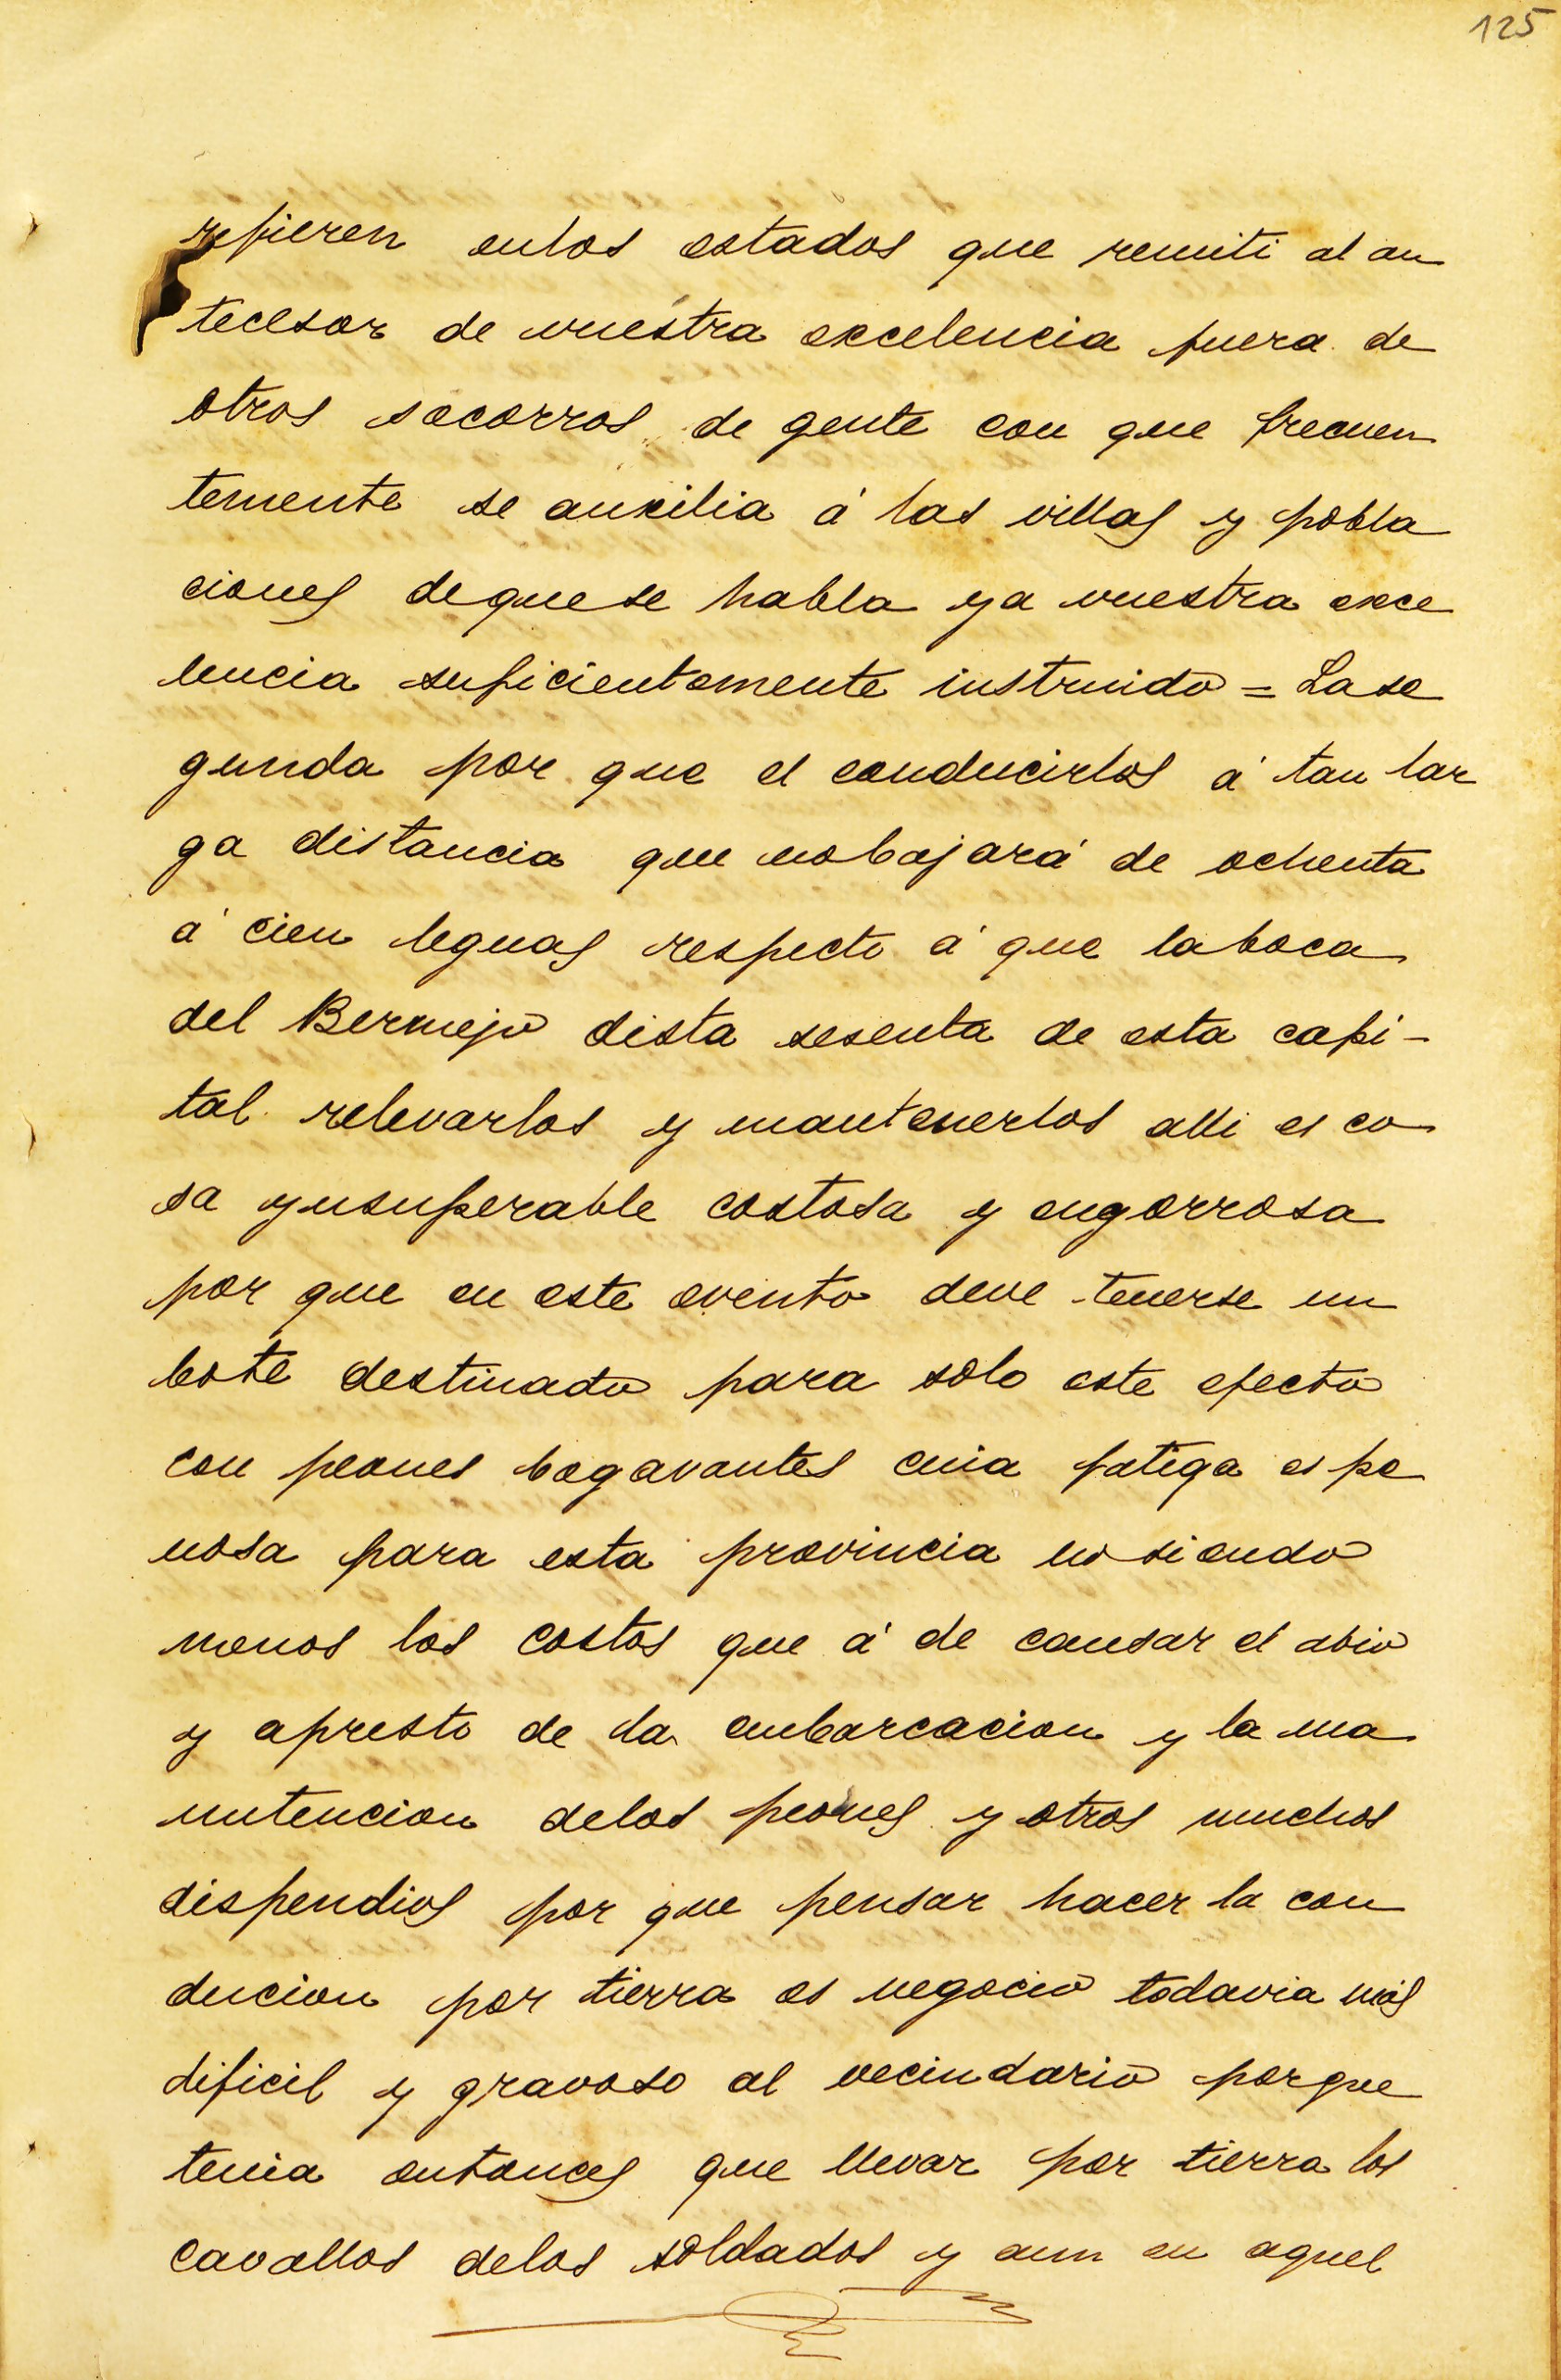 125
refieren enlos estados que remiti al an
tecesor de vuestra excelencia fuera de
otros socorros de gente con que frecuen
temente se auxilia á las villas y pobla
ciones dequese habla ya vuestra exce
lencia suficientemente instruido = La se
gunda por que el conducirlos á tan lar
ga distancia que nobajará de ochenta
á cien leguas respecto á que laboca
del Bermejo dista sesenta de esta capi-
tal relevarlos y mantenerlos alli es co
sa ynsuperable costosa y engorrosa
por que en este evento deve tenerse un
bote destinado para solo este efecto
con peones bogavantes cuia fatiga es pe
nosa para esta provincia no siendo
menos los costos que á de causar el abio
y apresto de la embarcacion y la ma
nutencion delos peones y otros muchos
dispendios por que pensar hacer la con
ducion por tierra es negocio todavia más
dificil y gravoso al vecindario porque
tenia entonces que llevar por tierra los
cavallos delos soldados y aun en aquel